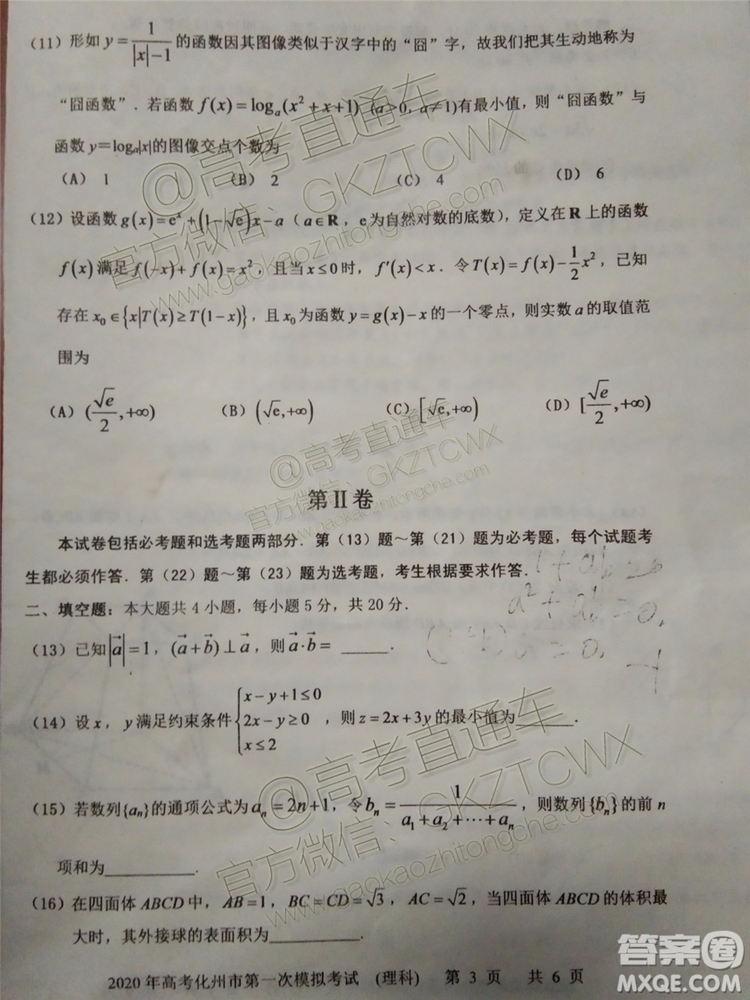 (11) 形如 y = 1/(|x|−1) 的函数因其图像类似于汉字中的“囧”字，故我们把其生动地称为
“囧函数”．若函数 f(x)=logₐ(x²+x+1) (a>0, a≠1)有最小值，则“囧函数”与
函数 y=logₐ|x|的图像交点个数为
(A) 1 (B) 2 (C) 4 (D) 6
(12) 设函数 g(x)=eˣ+(1−√e)x−a（a∈R，e为自然对数的底数），定义在 R 上的函数
f(x)满足 f(−x)+f(x)=x²，且当 x≤0 时，f′(x)<x．令 T(x)=f(x)−(1/2)x²，已知
存在 x₀∈{x|T(x)≥T(1−x)}，且 x₀ 为函数 y=g(x)−x 的一个零点，则实数 a 的取值范
围为
(A) (√e/2,+∞) (B) (√e,+∞) (C) [√e,+∞) (D) [√e/2,+∞)
第Ⅱ卷
本试卷包括必考题和选考题两部分．第（13）题～第（21）题为必考题，每个试题考
生都必须作答．第（22）题～第（23）题为选考题，考生根据要求作答．
1+ab=0
二、填空题：本大题共 4 小题，每小题 5 分，共 20 分．
a²+ab=0,
(13) 已知|a⃗|=1，(a⃗+b⃗)⊥a⃗，则 a⃗·b⃗ = ______．
-1
(14) 设 x，y 满足约束条件{x−y+1≤0 2x−y≥0 x≤2，则 z=2x+3y 的最小值为________．
(15) 若数列{aₙ}的通项公式为 aₙ=2n+1，令 bₙ=1/(a₁+a₂+⋯+aₙ)，则数列{bₙ}的前 n
项和为__________．
(16) 在四面体 ABCD 中，AB=1，BC=CD=√3，AC=√2，当四面体 ABCD 的体积最
大时，其外接球的表面积为__________．
2020 年高考化州市第一次模拟考试 （理科） 第 3 页 共 6 页
@高考直通车
官方微信：GKZTCWX
www.gaokaozhitongche.com
@高考直通车
官方微信：GKZTCWX
www.gaokaozhitongche.com
@高考直通车
官方微信：GKZTCWX
www.gaokaozhitongche.com
答案圈
MXQE.COM